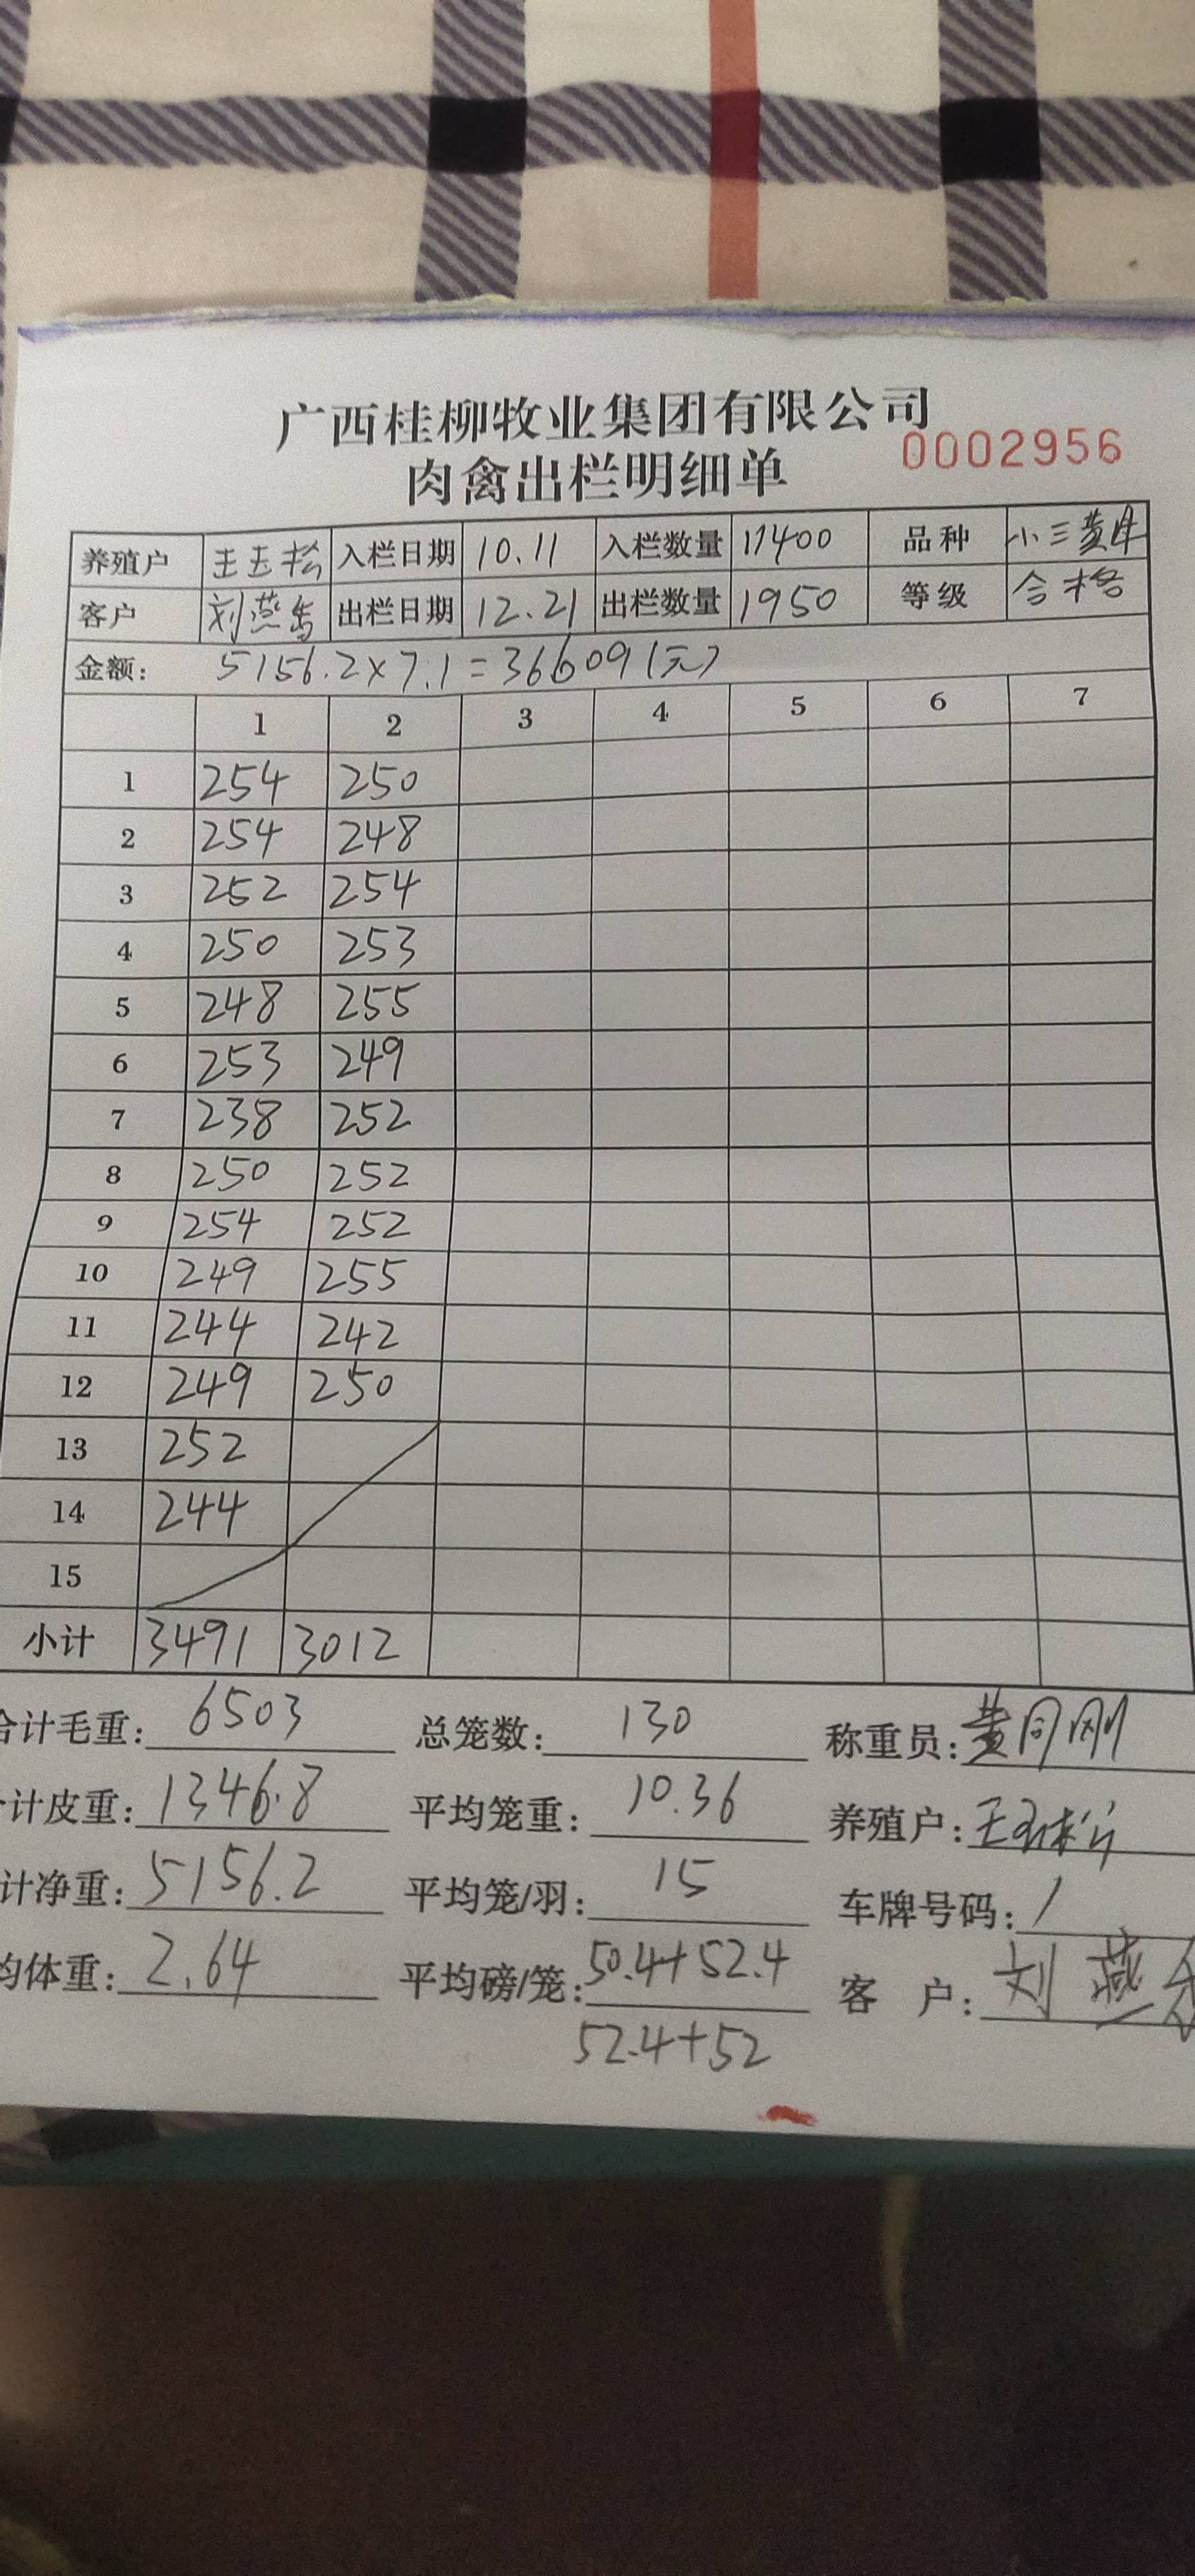 广西桂柳牧业集团有限公司
肉禽出栏明细单 0002956
养殖户 王玉松 入栏日期 10.11 入栏数量 17400 品种 小三黄
客户 刘燕 出栏日期 12.21 出栏数量 1950 等级 合格
金额: 5156.2×7.1=36609(元)
1 2 3 4 5 6 7
1 254 250
2 254 248
3 252 254
4 250 253
5 248 255
6 253 249
7 238 252
8 250 252
9 254 252
10 249 255
11 244 242
12 249 250
13 252
14 244
15
小计 3491 3012
合计毛重: 6503 总笼数: 130 称重员: 黄同刚
计皮重: 1346.8 平均笼重: 10.36 养殖户: 王玉松
计净重: 5156.2 平均笼/羽: 15 车牌号码: /
均体重: 2.64 平均磅/笼: 50.4+52.4 客 户: 刘燕
52.4+52